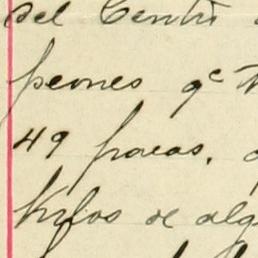 del Centr
peones qe
49 pacas,
kilos de alg